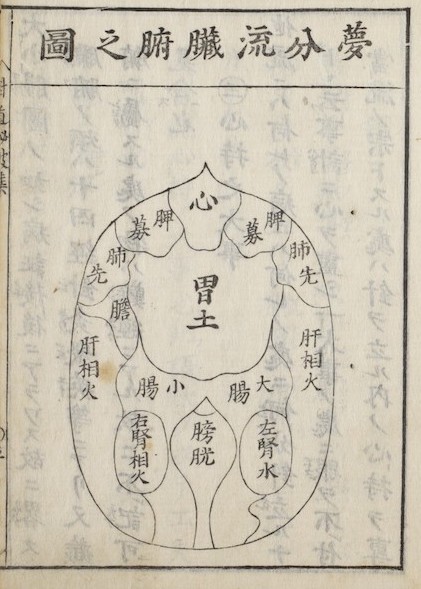 夢分流臟腑之圖
心
脾募
脾募
肺先
肺先
胃土
膽
肝相火
肝相火
大腸
小腸
左腎水
膀胱
右腎相火